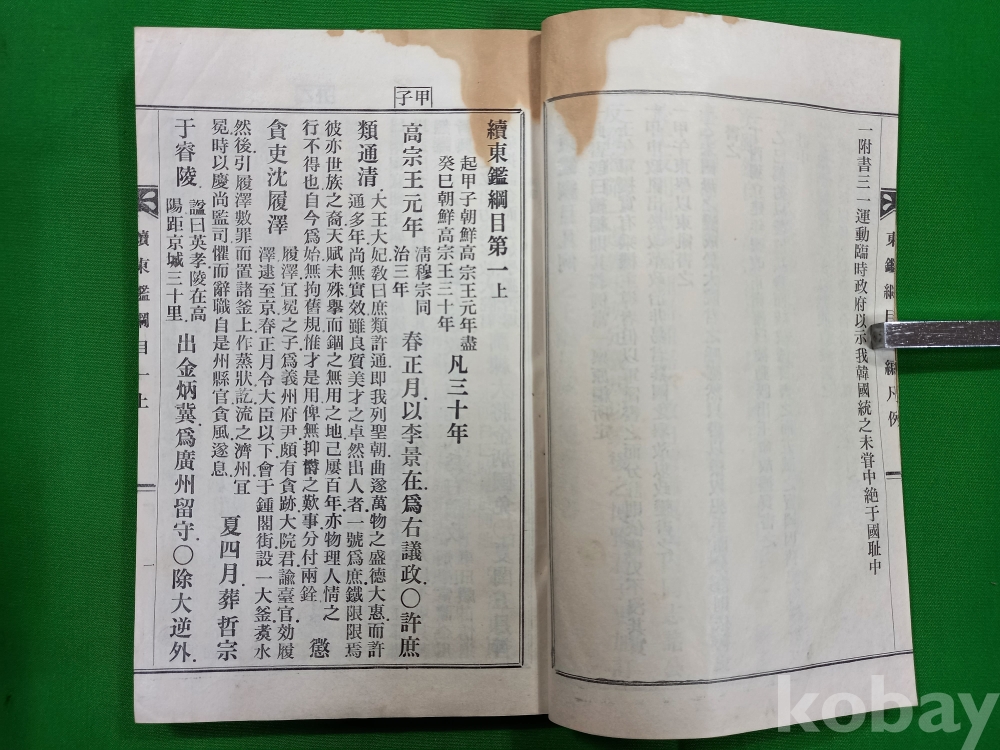 一附書三一運動臨時政府以示我韓國統之未甞中絶于國耻中
東鑑綱目 編凡例
甲子
續東鑑綱目第一上
起甲子朝鮮高宗王元年盡
癸巳朝鮮高宗王三十年
凡三十年
高宗王元年
淸穆宗同
治三年
春正月以李景在爲右議政〇許庶
類通淸
大王大妃敎曰庶類許通卽我列聖朝曲遂萬物之盛德大惠而許
通多年尚無實效雖良質美才之卓然出人者一號爲庶鐵限限焉
彼亦世族之裔天賦未殊擧而錮之無用之地己屢百年亦物理人情之
行不得也自今爲始無拘舊規惟才是用俾無抑欝之歎事分付兩銓
懲
貪吏沈履澤
履澤㝉冕之子爲義州府尹頗有貪跡大院君諭臺官効履
澤逮至京春正月令大臣以下會于鍾閣街設一大釜煑水
然後引履澤數罪而置諸釜上作蒸狀訖流之濟州㝉
冕時以慶尚監司懼而辭職自是州縣官貪風遂息
夏四月葬哲宗
于睿陵
謚曰英孝陵在高
陽距京城三十里
出金炳冀爲廣州留守〇除大逆外
續東鑑綱目一上
一
kobay